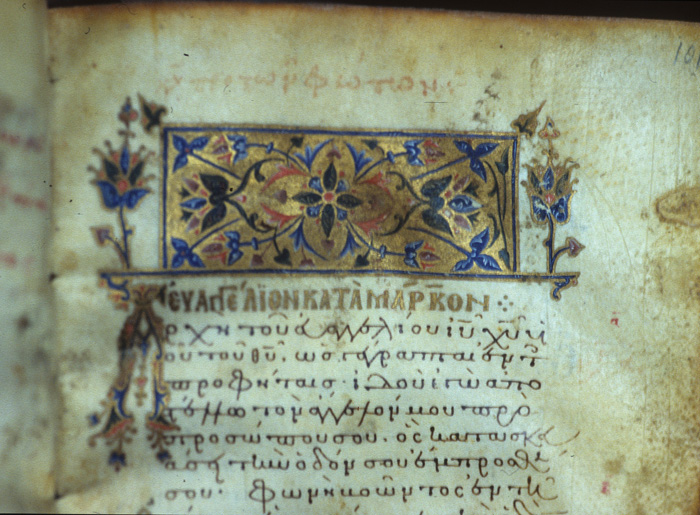 πρὸ τῶν φώτων
ΕΥΑΓΓΕΛΙΟΝ ΚΑΤᾺ ΜΆΡΚΟΝ
Ἀρχὴ τοῦ εὐαγγελίου ἰ̅υ̅ χ̅υ̅ υἱ
οῦ τοῦ θ̅υ̅. ὡς γέγραπται ἐν τ
προφήταις· ἰδοὺ ἐγὼ ἀπο
στέλλω τὸν ἄγγελόν μου πρὸ
προσώπου σου. ὃς κατασκευ
άσει τὴν ὁδόν σου ἔμπροσθέ
σου· φωνὴ βοῶντος ἐν τῆ